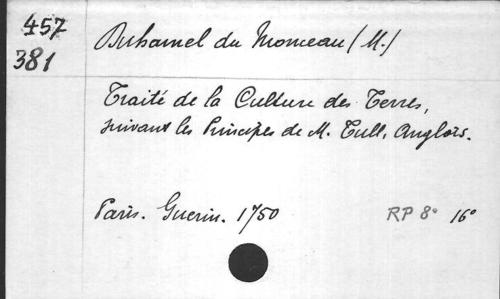 457
381
Duhamel du Monceau (M.)
Traité de la Culture des Terres,
suivant les Principes de M. Tull, Anglois.
Paris. Guerin. 1750 RP 8° 16°